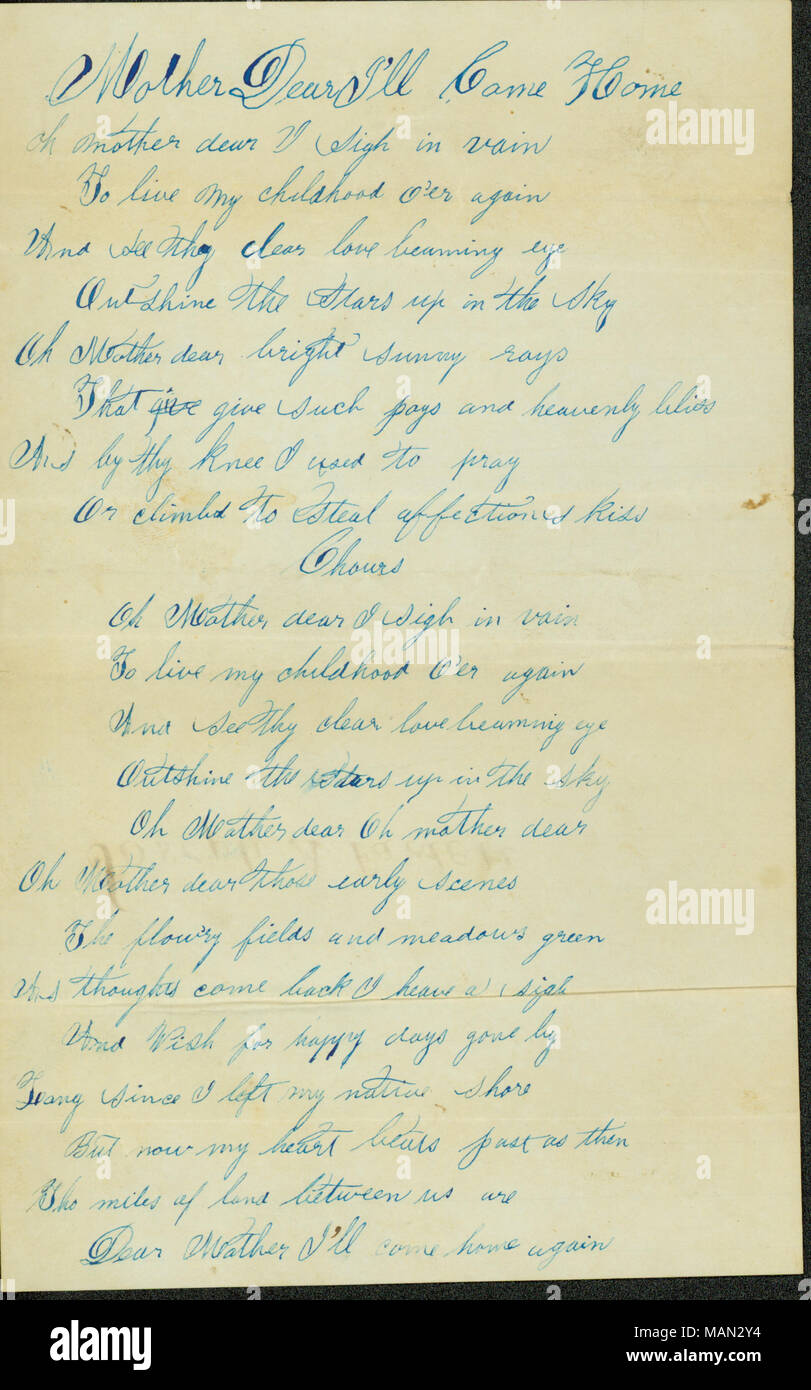 Mother Dear I'll Come Home
Oh mother dear I sigh in vain
To live my childhood O'er again
And see thy clear love beaming eye
Out shine the Stars up in the Sky
Oh Mother dear bright sunny rays
That give give such pays and heavenly bliss
As by thy knee I used to pray
Or climbd to Steal affections kiss
Chours
Oh Mother dear I sigh in vain
To live my childhood O'er again
And see thy clear love beaming eye
Outshine the Stars up in the Sky
Oh Mother dear Oh mother dear
Oh Mother dear those early scenes
The flowry fields and meadows green
As thoughts come back I heave a sigh
And Wish for happy days gone by
Long since I left my native shore
But now my heart beats past as then
Tho miles of land between us are
Dear Mother I'll come home again
alamy
alamy
alamy
alamy
Image ID: MAN2Y4
www.alamy.com